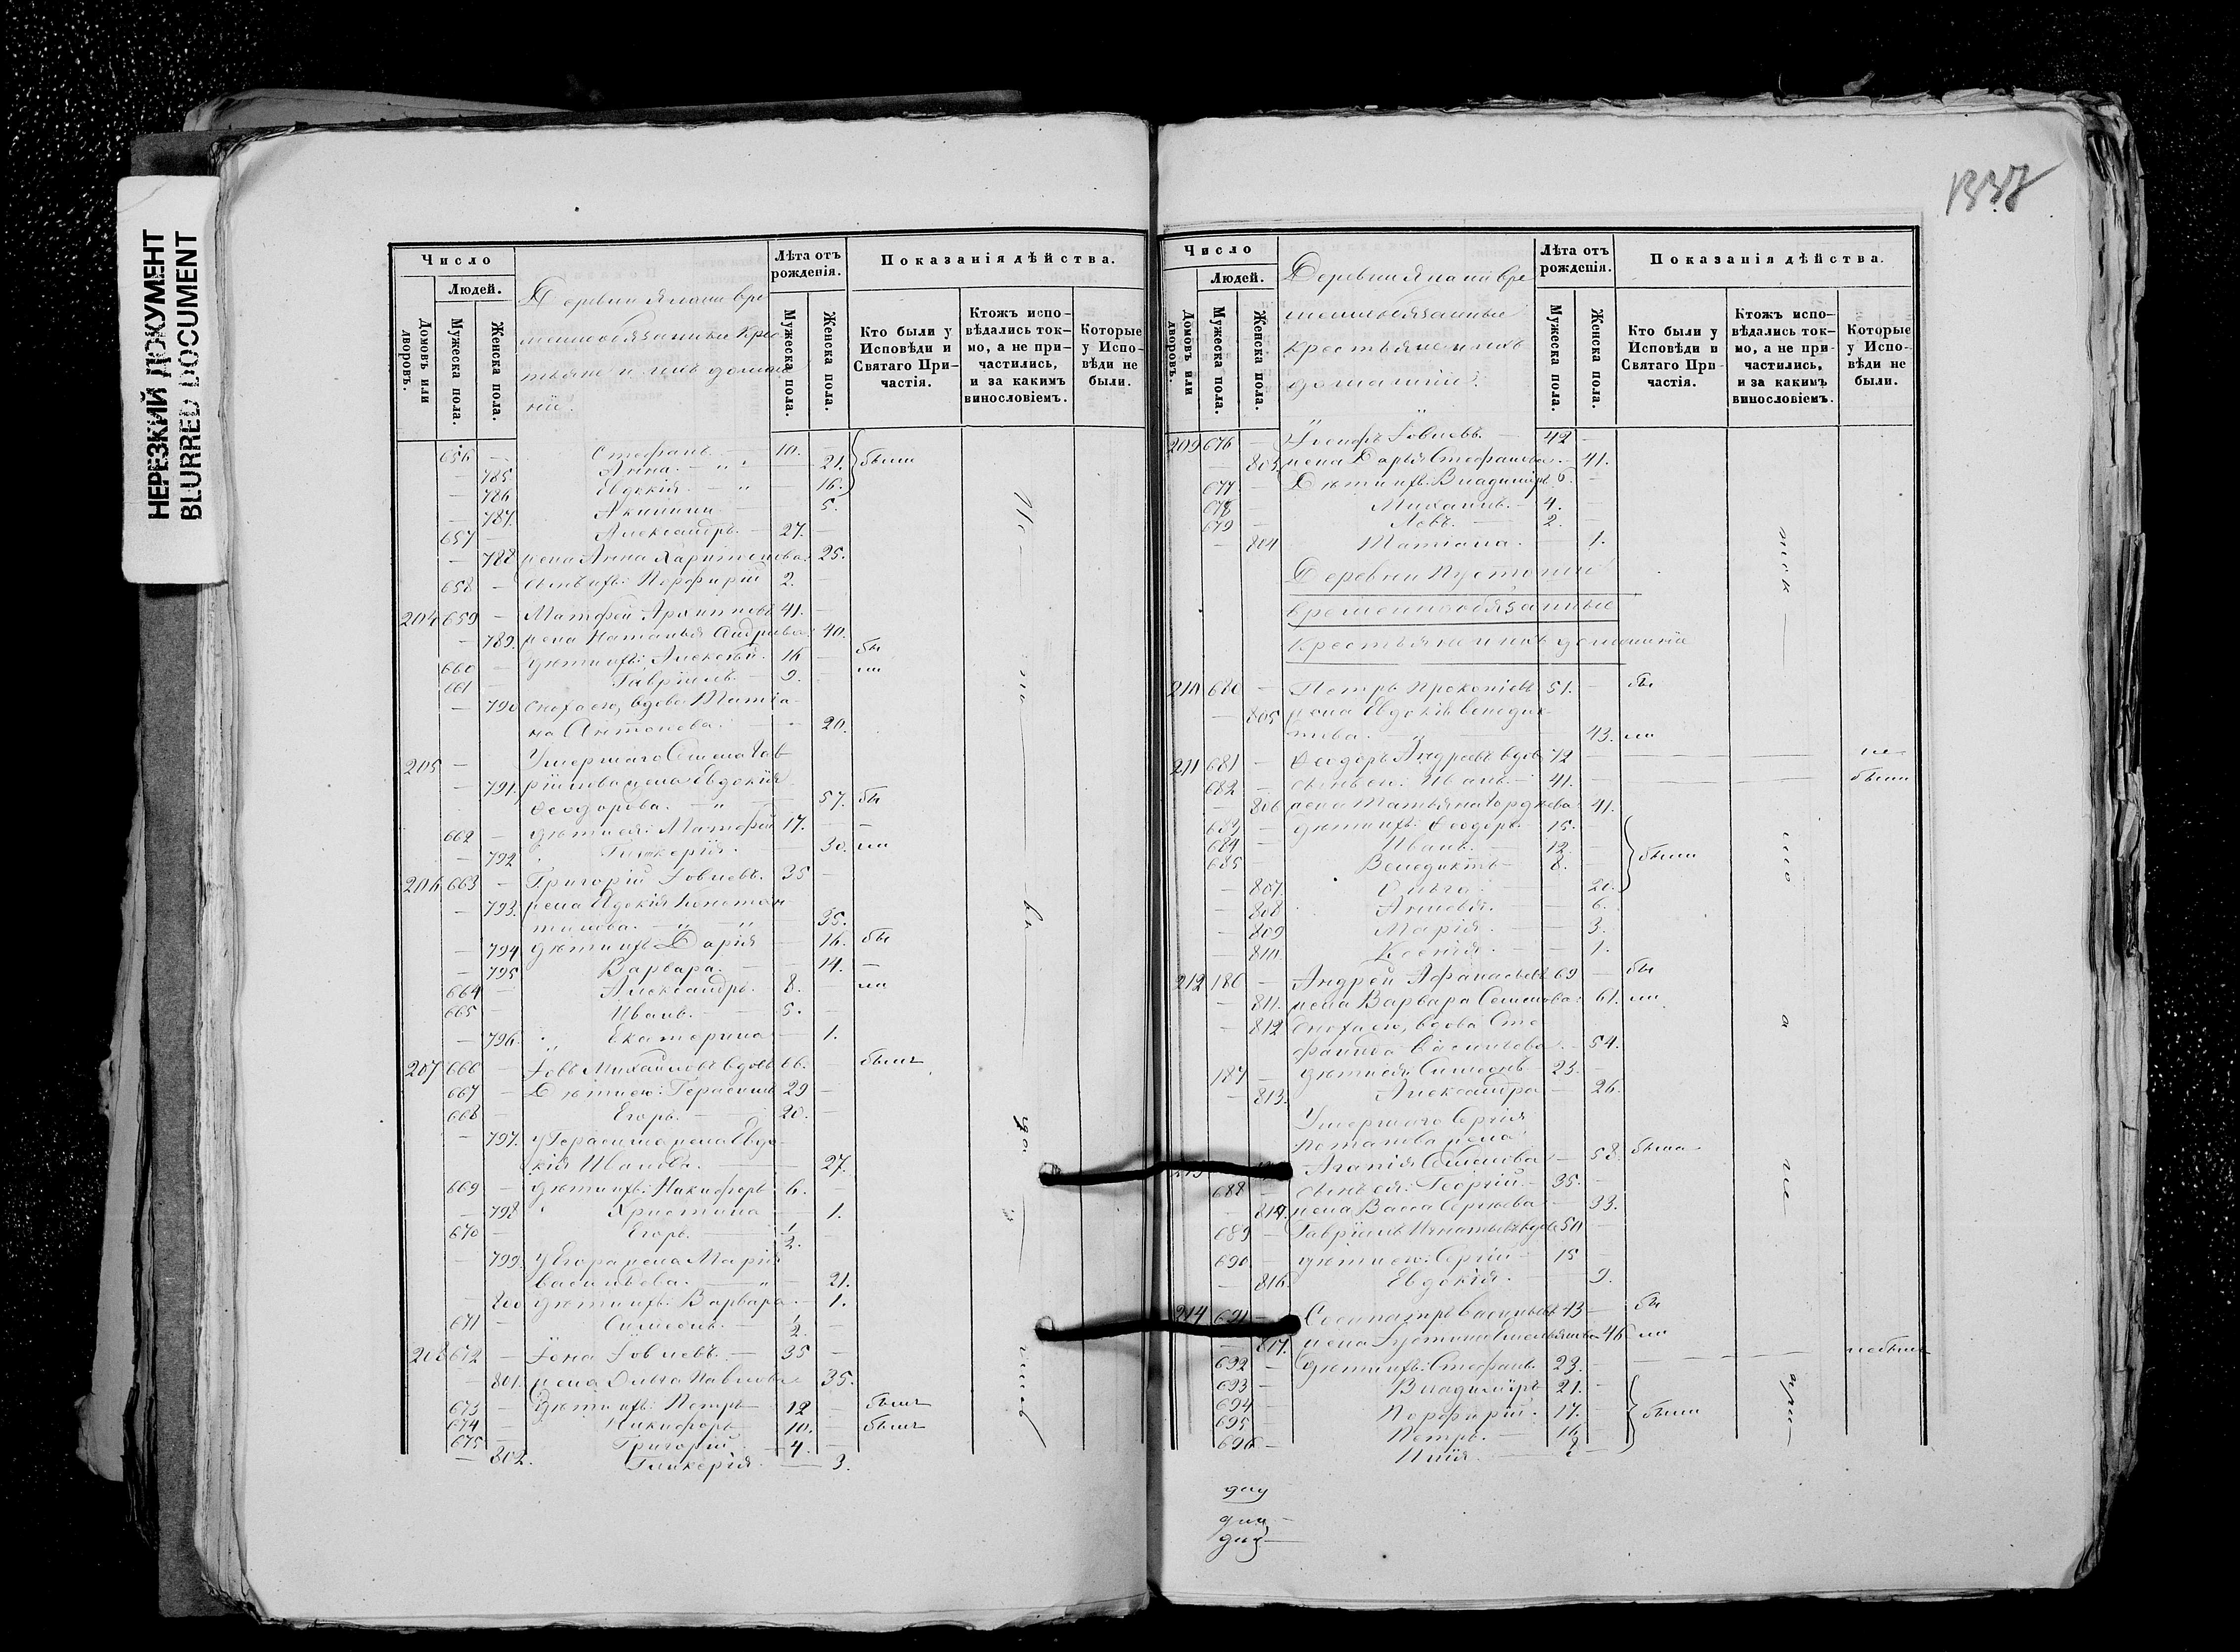 НЕРЕЗКИЙ ДОКУМЕНТ
BLURRED DOCUMENT
Число
Людей.
Домовъ или дворовъ.
Мужеска пола.
Женска пола.
Деревни временнообязанные крестьяне и ихъ домашніе.
Лѣта отъ рожденія.
Мужеска пола.
Женска пола.
Показанія дѣйства.
Кто были у Исповѣди и Святаго Причастія.
Ктожъ исповѣдались токмо, а не причастились, и за какимъ винословіемъ.
Которые у Исповѣди не были.
656 — Стефанъ. — 10. —
— 785 Анна. — 21. были
— 786 Евдокія — 16.
— 787. 5.
657 — Александръ. — 27. —
— 788 жена Анна Харитонова. 25.
658 — сынъ ихъ: Порфирій 2. —
204 659 — Матфей Архиповъ 41. —
— 789. жена Наталья Андреева. 40.
660 — дѣти ихъ: Алексѣй. 16 — бы
661 — Гавріилъ — 9. — ли
— 790 сноха его, вдова Татіа-
на Антонова. — 20.
205 — Умершаго Симеона Гав-
— 791. ріилова жена Евдокія
Ѳеодорова. — 57. бы
662 — дѣти ея: Матфей 17. — —
— 792 Гликерія. — 30. ли
206 663 — Григорій Іовлевъ. 35 —
— 793. жена
35.
— 794 дѣти ихъ Дарія — 16. бы
— 795 Варвара. — 14. —
664 — Александръ. 8. — ли
665 — Иванъ. — 5. —
— 796. Екатерина — 1.
207 666 — Іовъ Михайловъ вдовъ 66. — былъ
667 — Дѣти его: Герасимъ 29 —
668 — Егоръ. — 20. —
— 797. у Герасима жена Евдо-
кія Иванова. — 27.
669 — дѣти ихъ: Никифоръ 6. —
— 798 Христина — 1.
670 — Егоръ. — 1/2. —
— 799. у Егора жена Марія
Васильева. — 21.
— 800 дѣти ихъ: Варвара. — 1.
671 — Симеонъ. — 1/2. —
208 672 — Іона Іовлевъ. — 35 —
— 801. жена Ольга Павлова 35.
673 — Дѣти ихъ: Петръ — 12 — былъ
674 — Никифоръ — 10. — былъ
675 — Григорій. — 4. —
— 802. Гликерія. — 3.
1337
Число
Людей.
Домовъ или дворовъ.
Мужеска пола.
Женска пола.
Деревни временнообязанные крестьяне и ихъ домашніи.
Лѣта отъ рожденія.
Мужеска пола.
Женска пола.
Показанія дѣйства.
Кто были у Исповѣди и Святаго Причастія.
Ктожъ исповѣдались токмо, а не причастились, и за какимъ винословіемъ.
Которые у Исповѣди не были.
209 676 — Іосифъ Іовлевъ. — 42 —
— 803. жена Дарья Стефанова. — 41.
677 — Дѣти ихъ: Владиміръ 6. —
678 — Михаилъ. — 4. —
679 — Левъ. — 2. —
— 804 Татіана. — 1.
Деревни
временнообязанные
крестьяне и ихъ домашніи
210 680 — Петръ Прокопіевъ 51. — бы
— 805 жена Евдокія Венедик-
това. — 43. ли
211 681 — Ѳеодоръ Андреевъ вдовъ 72 — не
682 — сынъ его: Иванъ. — 41. — были
— 806 жена Татьяна Гордѣева 41.
683 — дѣти ихъ: Ѳеодоръ. — 15. —
684 — Иванъ. — 12. —
685 — Венедиктъ — 8. — были
— 807 Ольга. — 20.
— 808 6.
— 809 Марія. — 3.
— 810 Ксенія. — 1.
212 186 — Андрей Афанасьевъ 69 — бы
— 811. жена Варвара Семенова. 61. ли
— 812 сноха его, вдова Сте-
фанида Васильева. — 54.
187 — дѣти ея: Симеонъ 23. —
— 813. Александра — 26.
Умершаго Сергія
Потапова жена
Агапія Семенова — 58 была
688 — сынъ ея: Георгій. — 35. —
— жена Васса Сергѣева — 33.
689 — Гавріилъ Игнатьевъ вдовъ 50 —
690 — дѣти его: Сергій — 15 —
— 816. Евдокія. — 9.
214 691 — Сосипатръ Васильевъ 43 — бы
— 817. жена Іустина 46 ли
692 — дѣти ихъ: Стефанъ. 23. — небылъ
693 — Владиміръ 21. —
694 — Порфирій. — 17. — были
695 — Петръ. — 16 —
696 —